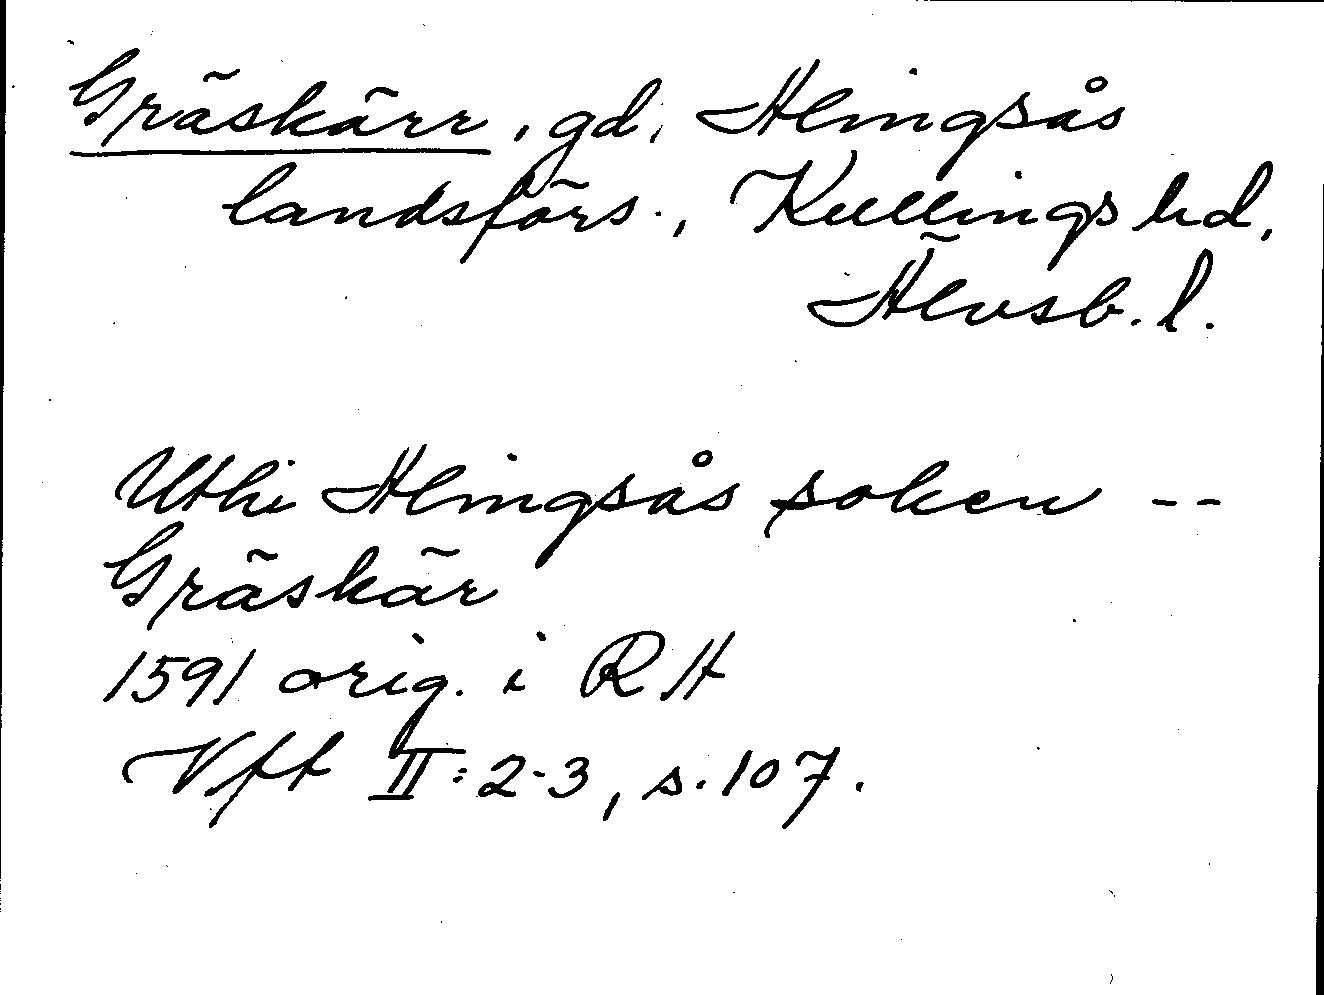 Gräskärr, gd, Alingsås
landsförs., Kullings hd,
Älvsb. l.
Uthi Alingsås soken --
Gräskär
1591 orig. i RA
Vft II:2-3, s. 107.